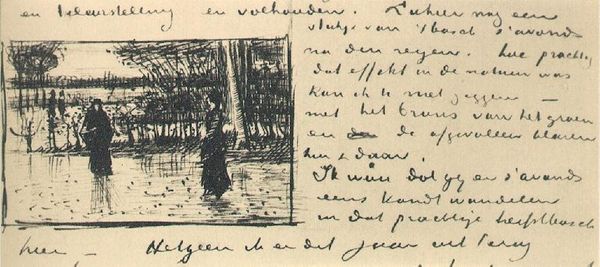 en kleurstelling en volhouden. Ziehier nog een
vlakje van 't bosch s'avonds
na den regen. hoe prachtig
dat effekt in de natuur was
kan ik U niet zeggen —
met het brons van het groen
en de afgevallen blaren
hier & daar.
Ik wou dat gij er s'avonds
eens kondt wandelen
in dat prachtige herfstbosch
hier — Hetgeen ik er dit jaar uit